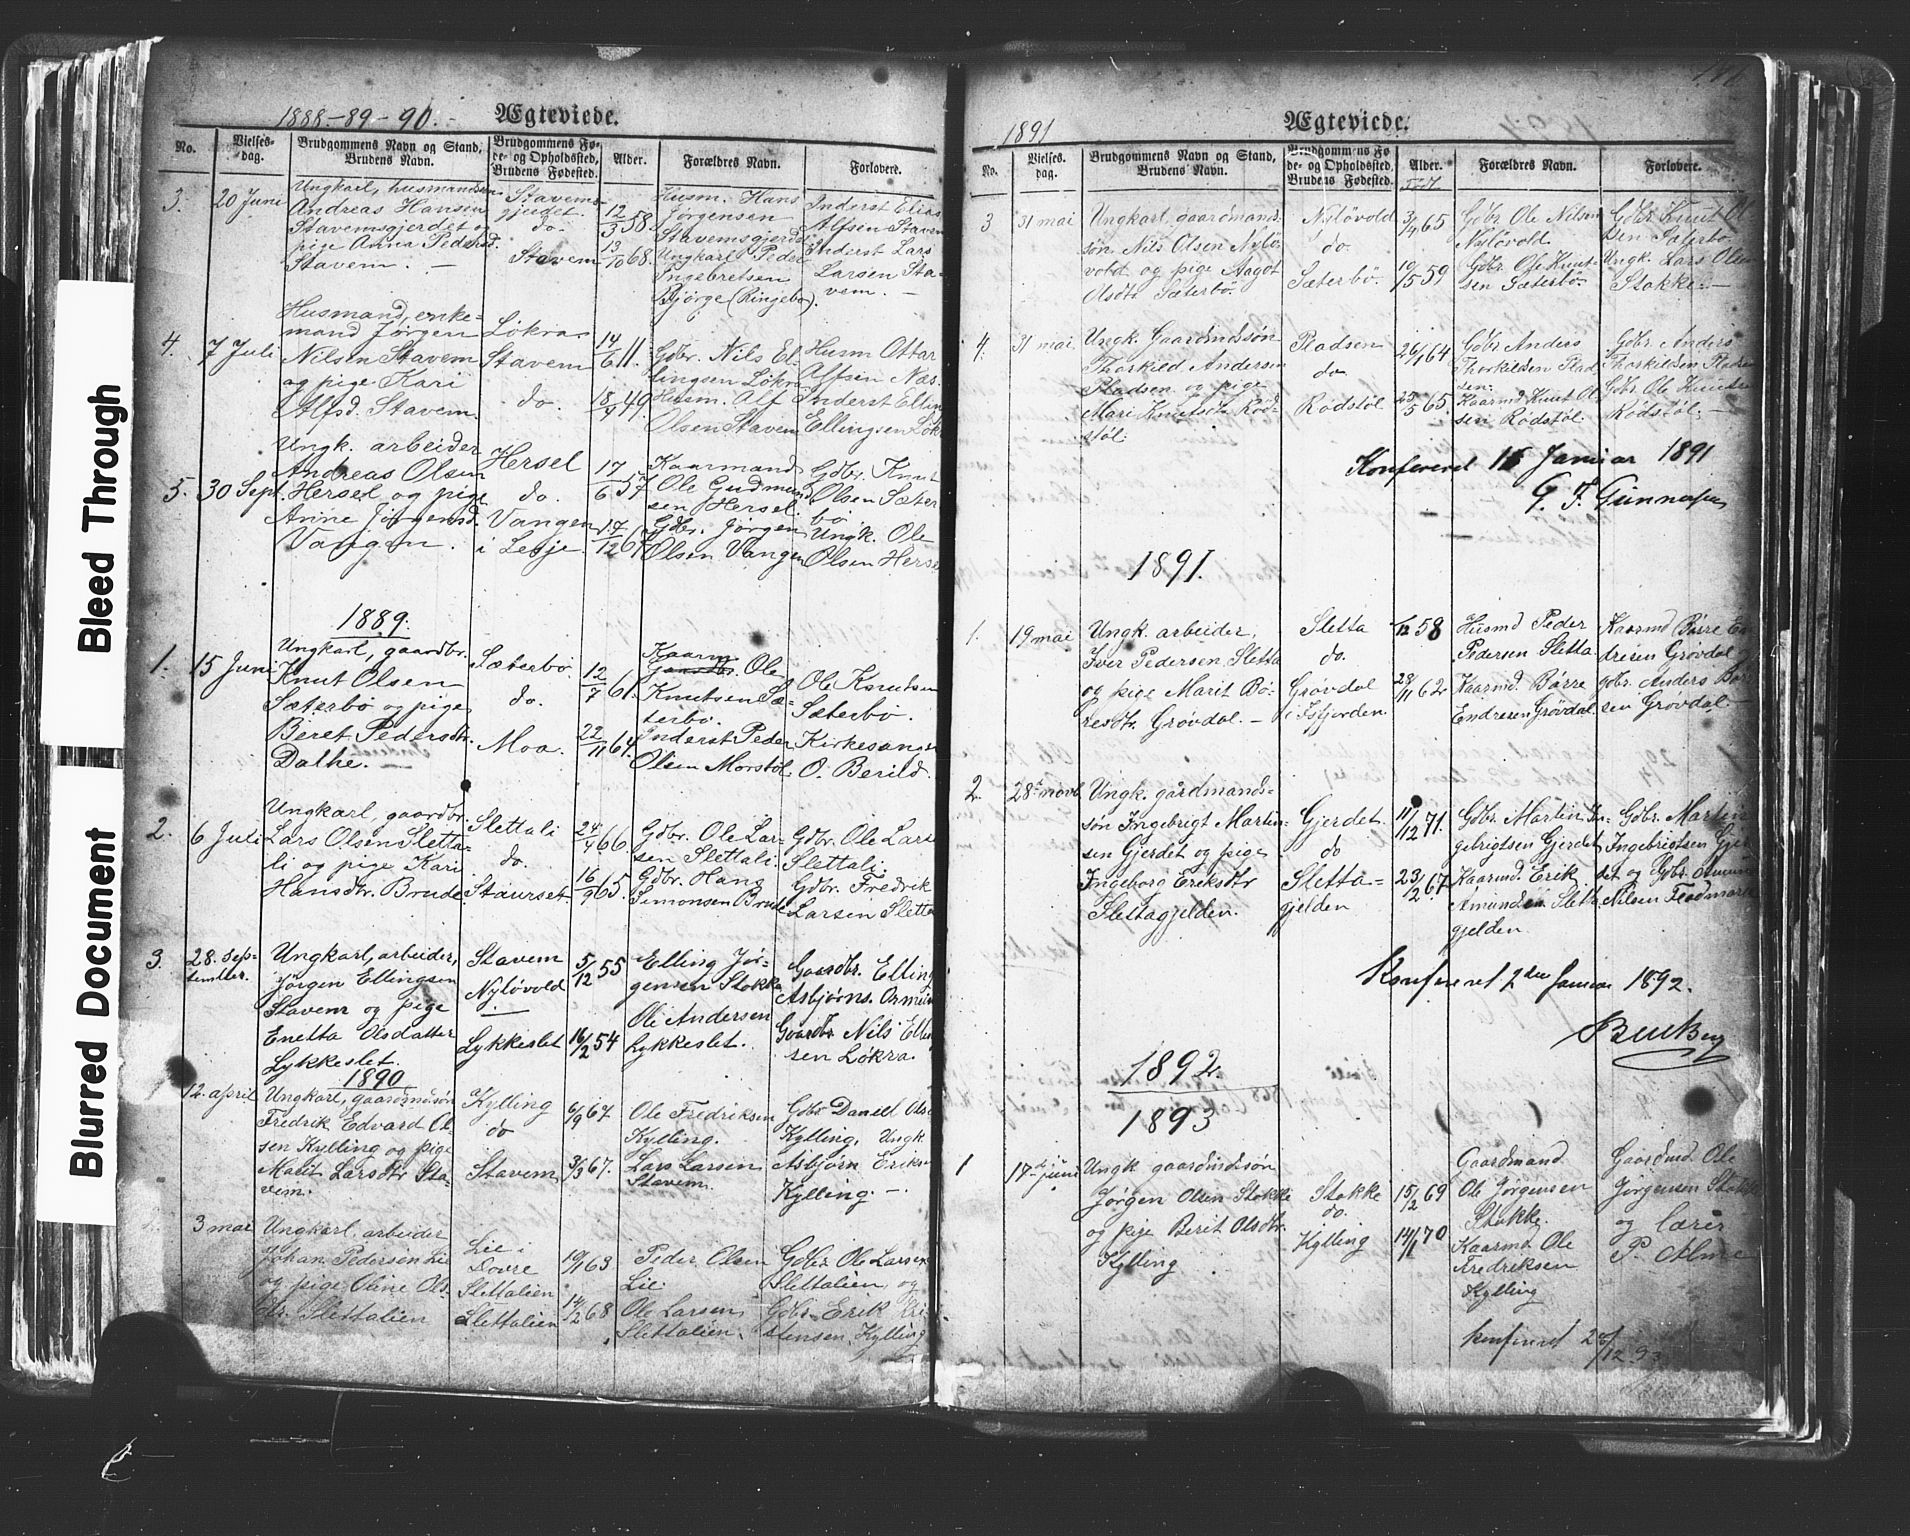 Bleed Through
Blurred Document
1888-89-90.- Ægteviede.
No.
Vielses-
dag.
Brudgommens Navn og Stand,
Brudens Navn.
Brudgommens Fø-
de- og Opholdssted,
Brudens Fødested.
Alder.
Forældres Navn.
Forlovere.
3.
20 Juni
Ungkarl, husmandssøn
Andreas Hansen
Stavemsgjerdet og
pige Anna Pedersd.
Stavem. -
Stavems-
gjerdet.
do.
Stavem
12/3 58
13/10 68
Husm. Hans
Jørgensen
Stavemsgjerdet
Ungkarl Peder
Ingebretsen
Bjørge (Ringebo).
Inderst Elias
Alfsen Stavem
Inderst Lars
Larsen Sta-
vem. -
4.
7 Juli
Husmand, enke-
mand Jørgen
Nilsen Stavem
og pige Kari
Alfsd. Stavem.
Løkra
Stavem
do.
14/6 11.
18/9 49
Gdbr. Nils El-
lingsen Løkra
Husm. Alf
Olsen Stavem
Husm Ottar
Alfsen Næs
Inderst Elling
Ellingsen Løkra
5.
30 Sept.
Ungk. arbeider
Andreas Olsen
Hersel og pige
Anne Jørgensd.
Vangen.
Hersel
do.
Vangen
i Lesje.
17/6 57
17/12 67
Kaarmand
Ole Gudmund
sen Hersel.
Gdbr. Jørgen
Olsen Vangen
Gdbr. Knut
Olsen Sæter
bø
Ungk. Ole
Olsen Hersel
1889.
1.
15 Juni
Ungkarl, gaardbr.
Knut Olsen
Sæterbø og pige
Beret Pedersdtr.
Dalhe.
Sæterbø
do.
Moa.
12/7 61.
22/11 64.
Kaarm
Ole
Knutsen Sæ-
terbø.
Inderst Peder
Olsen Morstøl.
Ole Knutsen
Sæterbø.
Kirkesanger
O. Berild.
2.
6 Juli
Ungkarl, gaardbr.
Lars Olsen Sletta-
li og pige Kari
Hansdtr. Brude
Slettali
do.
Staurset
24/4 66.
16/9 65.
Gdbr. Ole Lar-
sen Slettali.
Gdbr. Hans
Simonsen Brude
Gdbr. Ole Larsen
Slettali.
Gdbr. Fredrik
Larsen Sletta
3.
28. sep-
tember.
Ungkarl, arbeider,
Jørgen Ellingsen
Stavem og pige
Enetta Olsdatter
Lykkeslet.
Stavem
Nyløvold
Lykkeslet
5/12 55
16/2 54
Elling Jør-
gensen Stokke
Ole Andersen
Lykkeslet.
Gaardbr. Elling
Asbjørns. Ormem
Gaardbr Nils Ellin
sen Løkra.
1890
12. april
Ungkarl, gaardmdssøn
Fredrik Edvard Ol-
sen Kylling og pige
Marit Larsdtr Sta-
vem.
Kylling
do
Stavem
6/9 67.
3/3 67.
Ole Fredriksen
Kylling.
Lars Larsen
Stavem.
Gdbr Daniel Ols
Kylling. Ungk
Asbjørn Eriks
Kylling. -.
3 mai
Ungkarl, arbeider
Johan Pedersen Lie
og pige Oline Ols-
dtr. Slettalien
Lie i
Dovre
Slettalien
Slettalien
19/1 63
14/2 68
Peder Olsen
Lie.
Ole Larsen
Slettalien.
Gdbr Ole Larsen
Slettalien og
Gdbr. Erik Kri
stensen Kylling
1891 Ægteviede.
No.
Vielses-
dag.
Brudgommens Navn og Stand,
Brudens Navn.
Brudgommens Fø-
de- og Opholdssted,
Brudens Fødested.
Alder.
Forældres Navn.
Forlovere.
3
31 mai
Ungkarl, gaardmands-
søn Nils Olsen Nylø-
vold og pige Aagot
Olsdtr Sæterbø.
Nyløvold
do.
Sæterbø.
3/4 65
19/5 59
Gdbr Ole Nilsen
Nyløvold.
Gdbr. Ole Knut-
sen Sæterbø.
Gdbr. Knut Ol
sen Sæterbø
Ungk. Lars Olsen
Stokke. -
4.
31 mai.
Ungk. Gaardmdssøn
Thorkild Andersen
Pladsen og pige
Mari Knutsdtr Rød-
støl.
Pladsen
do.
Rødstøl.
26/1 64
25/5 65.
Gdbr Anders
Thorkildsen Plad
sen.
Kaarmd Knut Ol
sen Rødstøl.
Gdbr. Anders
Thorkildsen Pladsen
Gdbr. Ole Knuts
Rødstøl. -
Konfereret 15 Januar 1891
G. F. Gunnersen
1891.
1.
19 mai
Ungk. arbeider,
Iver Pedersen Sletta
og pige Marit Bø-
resdtr. Grøvdal. -
Sletta
do.
Grøvdal
i Isfjorden.
/12 58
28/11 62
Husmd Peder
Pedersen Sletta
Kaarmd. Børre
Endresen Grøvdal.
Kaarmd Børre En
dresen Grøvdal og
gdbr. Anders Bør
sen Grovdal. -
2.
28. novb
Ungk. gårdmands-
søn Ingebrigt Martin-
sen Gjerdet og pige
Ingeborg Eriksdtr
Slettagjelden.
Gjerdet
do
Sletta-
gjelden
11/12 71.
23/12 67.
Gdbr. Martin In-
gebrigtsen Gjerdet
Kaarmd. Erik
Amundsen Sletta
gjelden.
Gdbr. Martin
Ingebrigtsen Gjer
det og Gdbr. Amun
Nilsen Flodmark
Konfereret 2den Januar 1892.
1892.
1893
1
17de juni
Ungk gaardmdssøn
Jørgen Olsen Stokke
og pige Berit Olsdtr.
Kylling
Stokke
do.
Kylling
15/2 69
14/1 70
Gaardmand
Ole Jørgensen
Stokke.
Kaarmd Ole
Fredriksen
Kylling
Gaardmd. Ole
Jørgensen Stokke
og lærer
P. Alme
konfereret 28/12 93